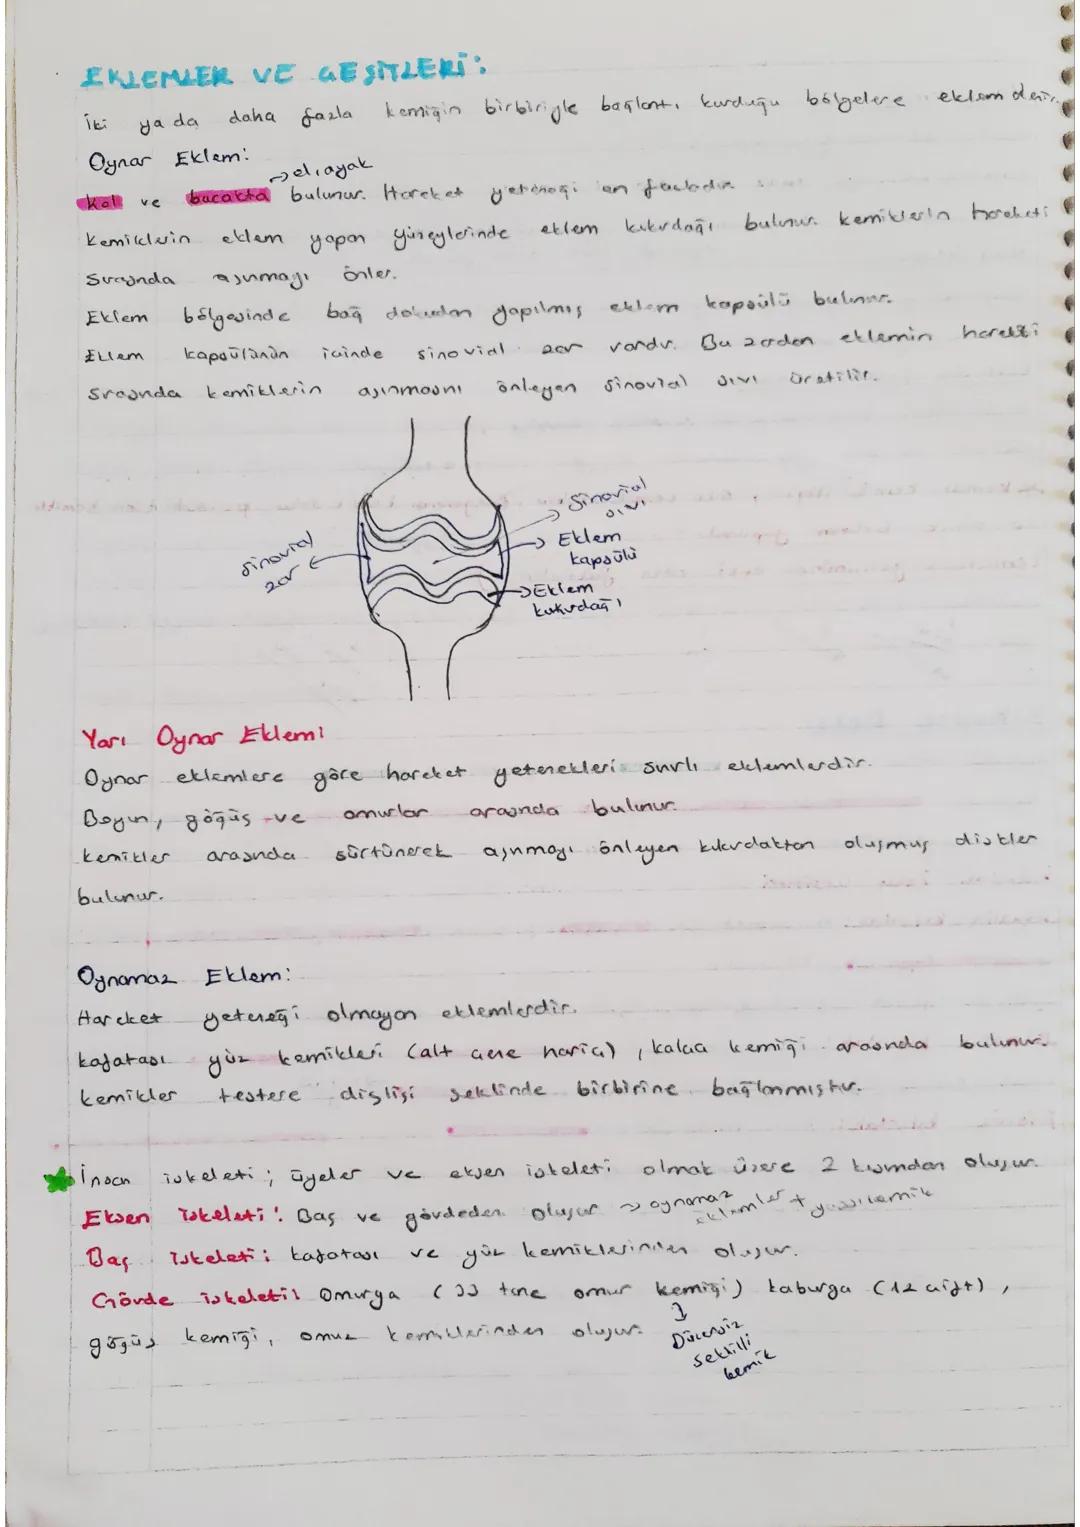 EKLEMLER VE ÇEŞİTLERİ:
İki ya da daha fazla kemiğin birbiriyle bağlantı kurduğu bölgelere eklem denir.
Oynar Eklem:
→ el, ayak
kol ve bacakta bulunur. Hareket yeteneği en fazladır.
Kemiklerin eklem yapan yüzeylerinde eklem kıkırdağı bulunur. Kemiklerin hareketi
sırasında aşınmayı önler.
Eklem bölgesinde bağ dokudan yapılmış eklem kapsülü bulunur.
Eklem kapsülünün içinde sinovial zar vardır. Bu zardan eklemin hareketi
sırasında kemiklerin aşınmasını önleyen sinovial sıvı üretilir.
Sinovial
sıvı
Eklem
kapsülü
Sinovial
zar
Eklem
kıkırdağı
Yarı Oynar Eklem:
Oynar eklemlere göre hareket yetenekleri sınırlı eklemlerdir.
Boyun, göğüs ve omurlar arasında bulunur.
Kemikler arasında sürtünerek aşınmayı önleyen kıkırdaktan oluşmuş diskler
bulunur.
Oynamaz Eklem:
Hareket yeteneği olmayan eklemlerdir.
kafatası yüz kemikleri (alt çene hariç), kalça kemiği arasında bulunur.
kemikler testere dişlisi şeklinde birbirine bağlanmıştır.
İnsan iskeleti; üyeler ve eksen iskeleti olmak üzere 2 kısımdan oluşur.
Eksen İskeleti: Baş ve gövdeden oluşur → oynamaz eklemler + yassı kemik
Baş İskeleti: kafatası ve yüz kemiklerinden oluşur.
Gövde iskeleti: Omurga (33 tane omur kemiği) kaburga (12 çift),
göğüs kemiği, omuz kemiklerinden oluşur.
Düzensiz
şekilli
kemik